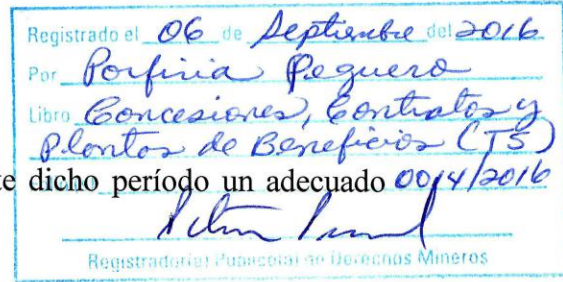 Registrado el 06 de Septiembre del 2016
Por Porfiria Peguero
Libro Concesiones, Contratos y
Plantas de Beneficios (T5)
te dicho período un adecuado 0014/2016
Registrador(a) Público(a) de Derechos Mineros